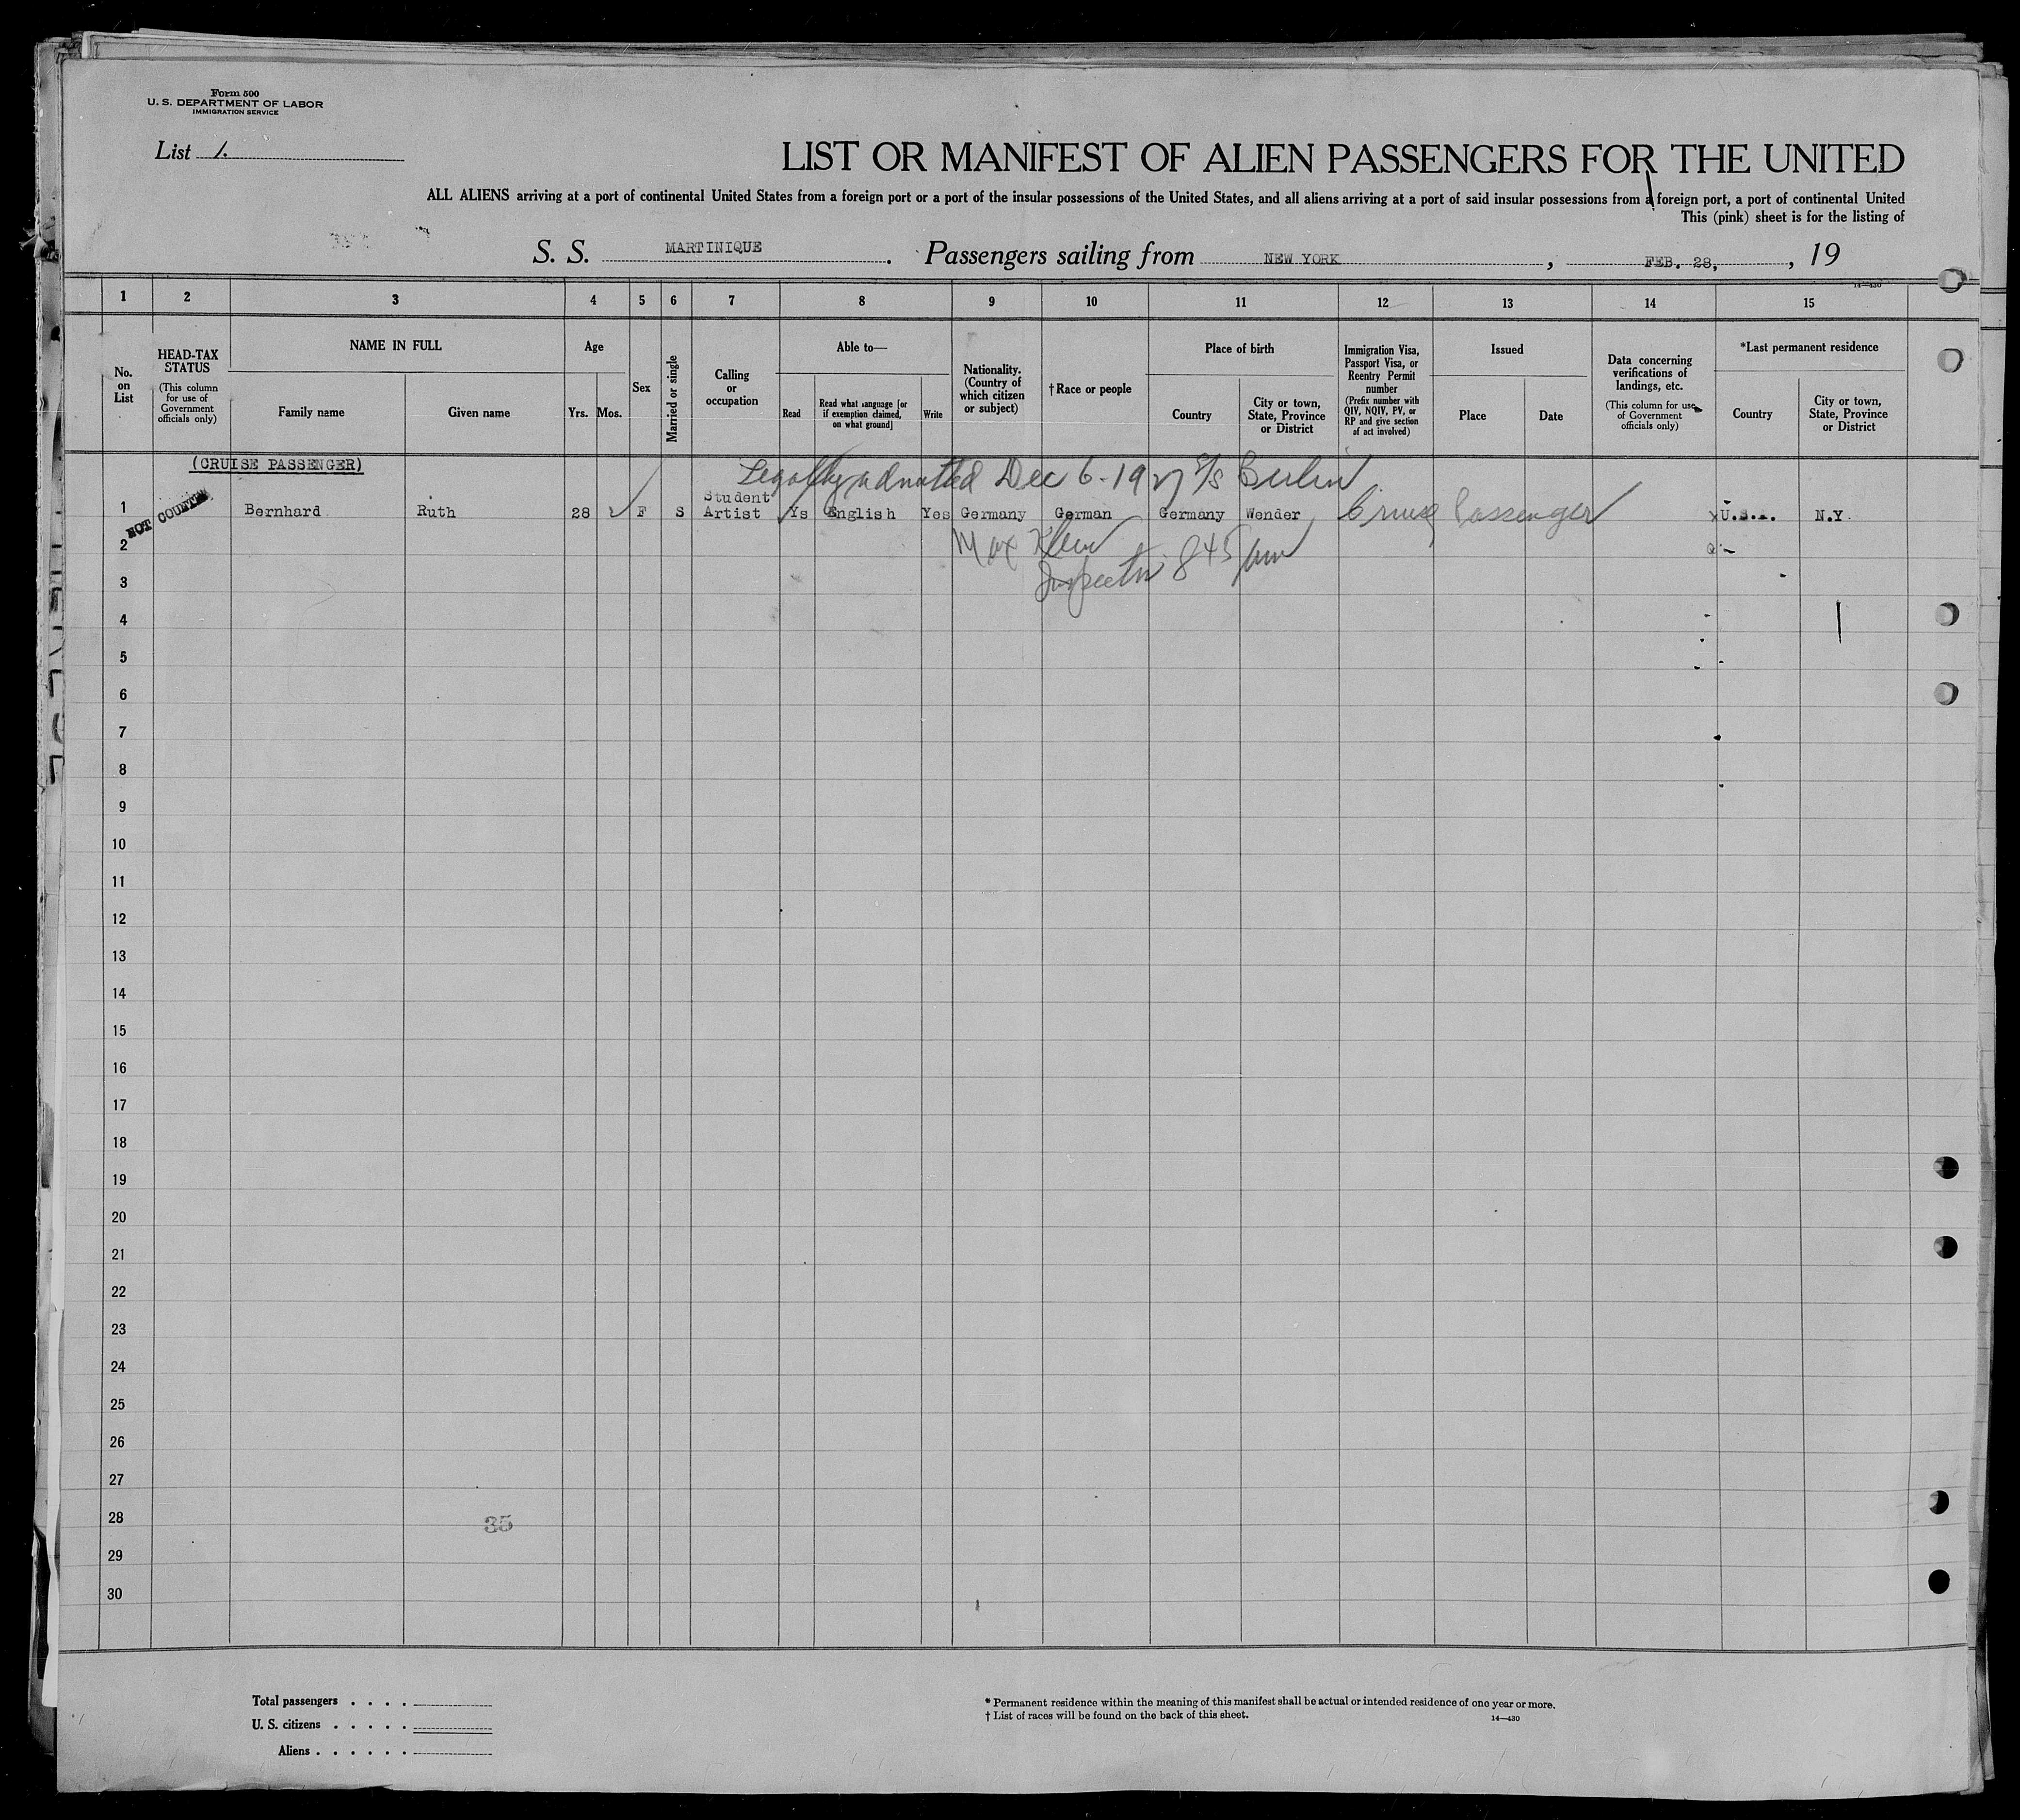 Form 500
U. S. DEPARTMENT OF LABOR
IMMIGRATION SERVICE
List 1.
LIST OR MANIFEST OF ALIEN PASSENGERS FOR THE UNITED
ALL ALIENS arriving at a port of continental United States from a foreign port or a port of the insular possessions of the United States, and all aliens arriving at a port of said insular possessions from a foreign port, a port of continental United
This (pink) sheet is for the listing of
S. S. MARTINIQUE . Passengers sailing from NEW YORK , FEB. 28, , 19
14—430
1 2 3 4 5 6 7 8 9 10 11 12 13 14 15
No. on List
HEAD-TAX STATUS
(This column for use of Government officials only)
NAME IN FULL
Family name Given name
Age
Yrs. Mos.
Sex
Married or single
Calling or occupation
Able to—
Read
Read what language [or if exemption claimed, on what ground]
Write
Nationality. (Country of which citizen or subject)
†Race or people
Place of birth
Country
City or town, State, Province or District
Immigration Visa, Passport Visa, or Reentry Permit number
(Prefix number with QIV, NQIV, PV, or RP and give section of act involved)
Issued
Place Date
Data concerning verifications of landings, etc.
(This column for use of Government officials only)
*Last permanent residence
Country
City or town, State, Province or District
(CRUISE PASSENGER)
Legally admitted Dec 6-1927 S/S Berlin
NOT COUNTED
1 Bernhard Ruth 28 F S Student Artist Ys English Yes Germany German Germany Wender Cruise Passenger xU.S.A. N.Y.
2 Max Klein
3 Inspector 845 am
4
5
6
7
8
9
10
11
12
13
14
15
16
17
18
19
20
21
22
23
24
25
26
27
28
35
29
30
Total passengers . . . .
U. S. citizens . . . . .
Aliens . . . . . .
* Permanent residence within the meaning of this manifest shall be actual or intended residence of one year or more.
† List of races will be found on the back of this sheet.
14—430